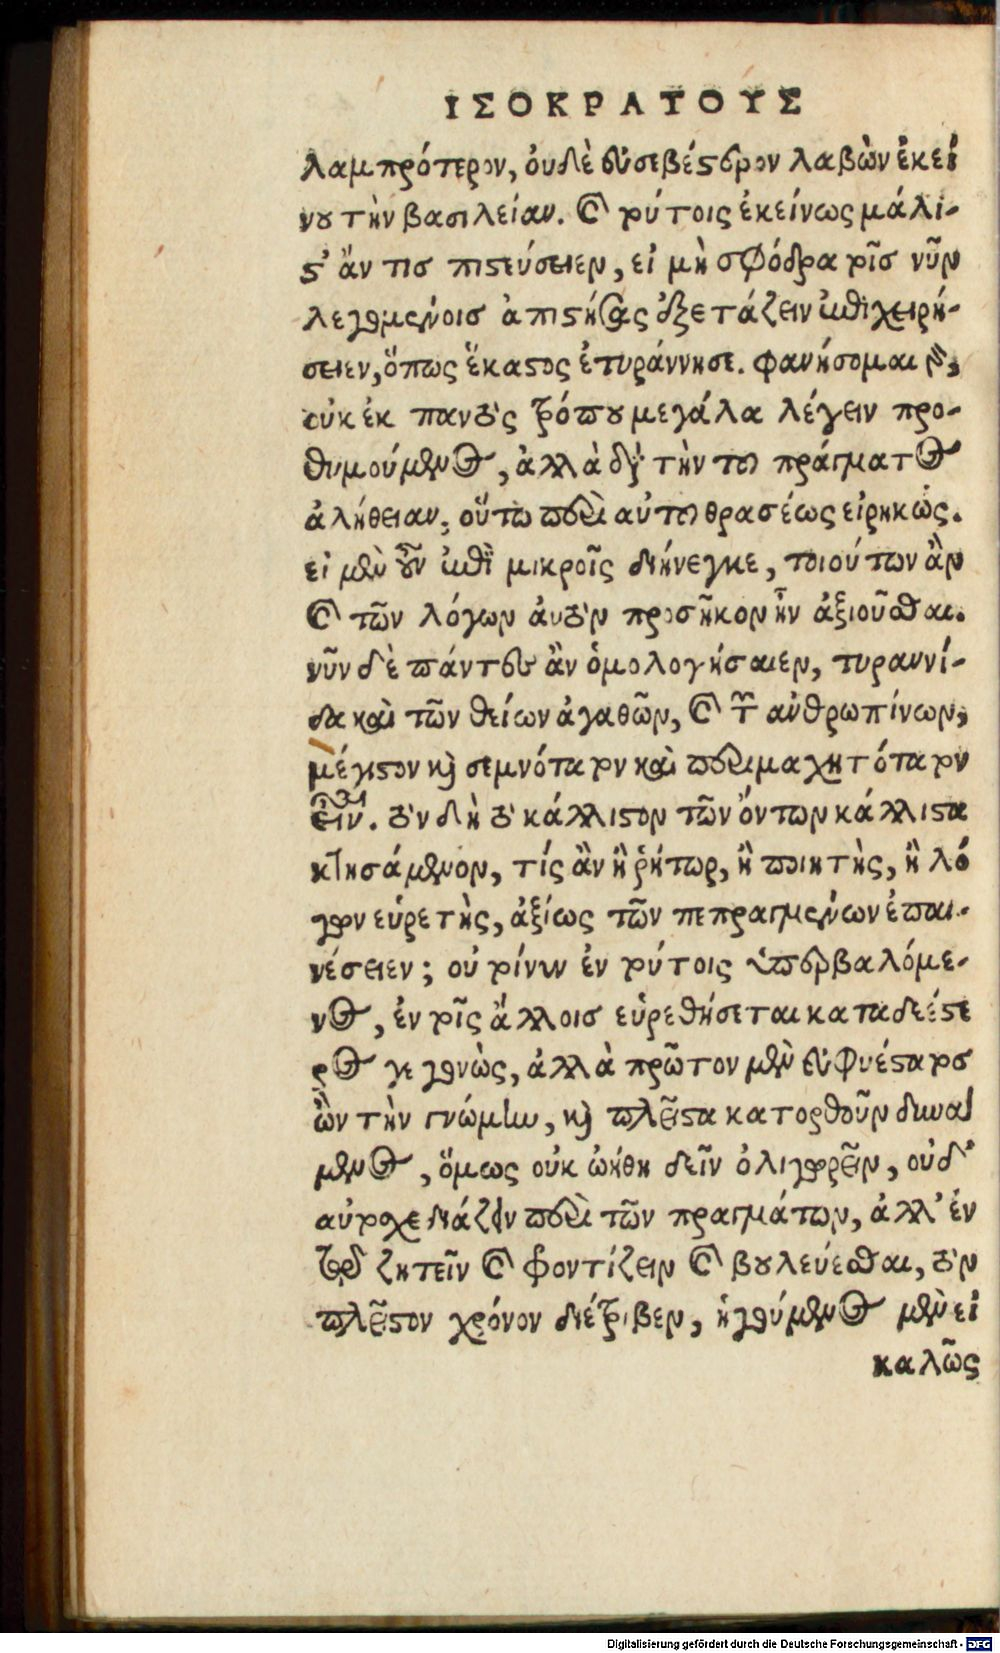 ΙΣΟΚΡΑΤΟΥΣ
λαμπρότερον, ὀυδὲ εὐσεβέστερον λαβὼν ἐκεί
νου τὴν βασιλείαν. καὶ τούτοις ἐκείνως μάλι-
στ' ἄν τις πιστεύσειεν, εἰ μὴ σφόδρα τοῖς νῦν
λεγομένοις ἀπιστήσας ἐξετάζειν ἐπιχειρή-
σειεν, ὅπως ἕκαστος ἐτυράννησε. φανήσομαι γὰρ,
οὐκ ἐκ παντὸς τρόπου μεγάλα λέγειν προ-
θυμούμενος, ἀλλὰ διὰ τὴν τοῦ πράγματος
ἀλήθειαν, οὕτω περὶ αὐτοῦ θρασέως εἰρηκώς.
εἰ μὲν οὖν ἐπὶ μικροῖς διήνεγκε, τοιούτων ἂν
καὶ τῶν λόγων ἀυτὸν προσῆκον ἦν ἀξιοῦσθαι.
νῦν δὲ πάντες ἂν ὁμολογήσαιεν, τυραννί-
δα καὶ τῶν θείων ἀγαθῶν, καὶ τῶν ἀνθρωπίνων,
μέγιστον καὶ σεμνότατον καὶ περιμαχητότατον
εἶναι. τὸν δὴ τὸ κάλλιστον τῶν ὄντων κάλλιστα
κτησάμενον, τίς ἂν ἢ ῥήτωρ, ἢ ποιητὴς, ἢ λό
γων εὑρετὴς, ἀξίως τῶν πεπραγμένων ἐπαι-
νέσειεν; οὐ τοίνυν ἐν τούτοις ὑπερβαλόμε-
νος, ἐν τοῖς ἄλλοις εὑρεθήσεται καταδεέστε
ρος γεγονὼς, ἀλλὰ πρῶτον μὲν εὐφυέστατος
ὢν τὴν γνώμην, καὶ πλεῖστα κατορθοῦν δυνά
μενος, ὅμως οὐκ ᾠήθη δεῖν ὀλιγωρεῖν, οὐδ'
αὐτοσχεδιάζειν περὶ τῶν πραγμάτων, ἀλλ' ἐν
τῷ ζητεῖν καὶ φροντίζειν καὶ βουλεύεσθαι, τὸν
πλεῖστον χρόνον διέτριβεν, ἡγούμενος μὲν εἰ
καλῶς
Digitalisierung gefördert durch die Deutsche Forschungsgemeinschaft - DFG